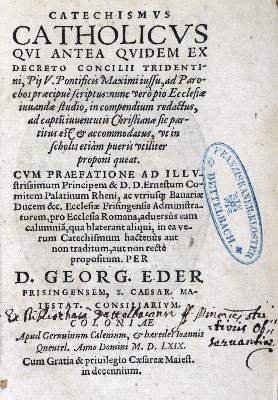 CATECHISMVS
CATHOLICVS
QVI ANTEA QVIDEM EX
DECRETO CONCILII TRIDENTI-
ni, Pij V. Pontificis Maximi iussu, ad Paro-
chos præcipuè scriptus: nunc verò pio Ecclesiæ
iuuandæ studio, in compendium redactus,
ad captũ iuuentutis Christianæ sic par-
titus est & accommodatus, vt in
scholis etiam pueris vtiliter
proponi queat.
CVM PRAEFATIONE AD ILLV-
strissimum Principem & D. D. Ernestum Co-
mitem Palatinum Rheni, ac vtriusq; Bauariæ
Ducem &c. Ecclesiæ Frisingensis Administra-
torem, pro Ecclesia Romana, aduersus eam
calumniã, qua blaterant aliqui, in ea ve-
rum Catechismum hactenus aut
non traditum, aut non rectè
propositum. PER
D. GEORG. EDER
FRISINGENSEM, S. CAESAR. MA-
IESTAT. CONSILIARIVM.
Ex Bibliotheca
COLONIAE
Apud Geruuinum Calenium, & hæredes Ioannis
Quentel. Anno Domini M. D. LXIX.
Cum Gratia & priuilegio Cæsareæ Maiest.
in decennium.
FRANZISKANERKLOSTER
DETTELBACH